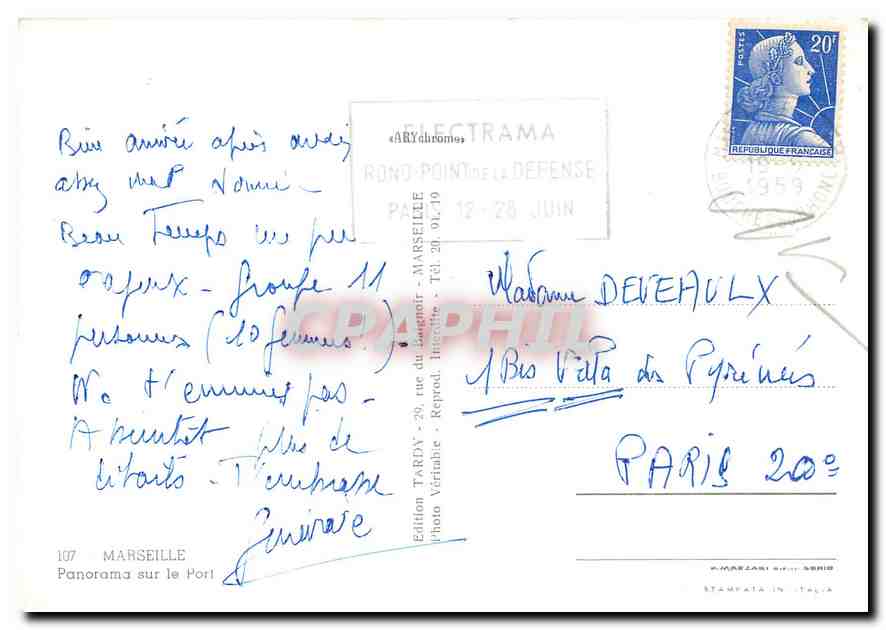 Bien arrivée après avoir
assez mal dormi -
Beau Temps un peu
orageux - groupe 11
personnes (10 femmes!) -
Ne t'ennuies pas -
A bientôt plus de
détails - T'embrasse
Geneviève
107 - MARSEILLE
Panorama sur le Port
«ARYchrome»
Edition TARDY - 29, rue du Baignoir - MARSEILLE
Photo Véritable - Reprod. Interdite - Tél. 20. 01. 19
ELECTRAMA
ROND-POINT DE LA DEFENSE
PARIS 12-28 JUIN
POSTES
20F
REPUBLIQUE FRANÇAISE
1959
CPAPHIL
Madame DEVEAULX
1 Bis Villa des Pyrénées
PARIS 20e
STAMPATA IN ITALIA